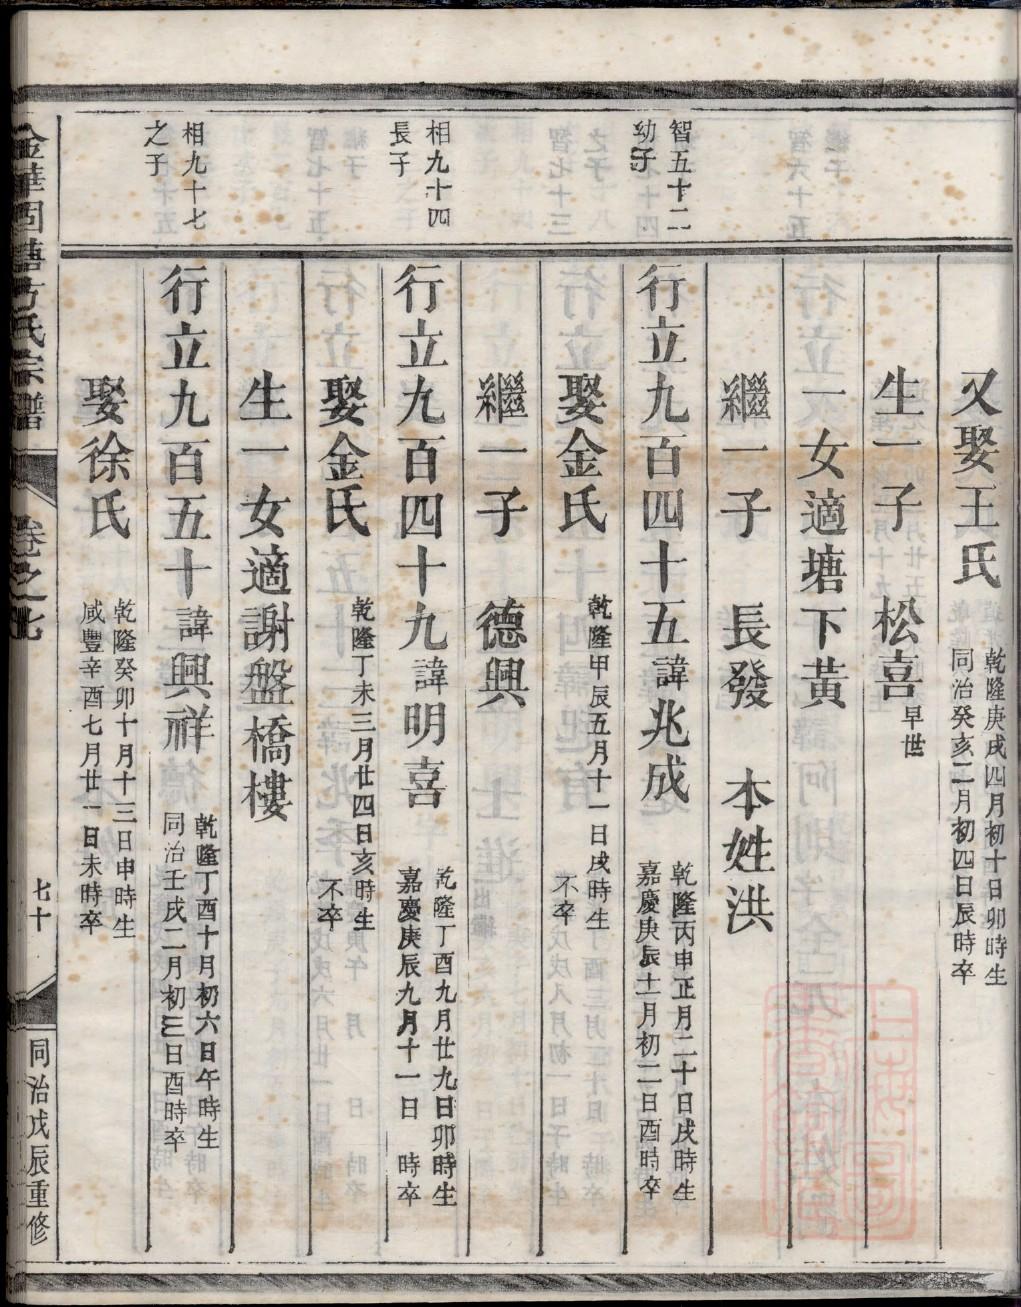 又娶王氏 乾隆庚戌四月初十日卯時生
同治癸亥二月初四日辰時卒
生一子 松喜 早世
一女適塘下黃
繼一子 長發 本姓洪
智五十二
幼子
行立九百四十五諱兆成 乾隆丙申正月二十日戌時生
嘉慶庚辰十二月初二日酉時卒
娶金氏 乾隆甲辰五月十一日戌時生
不卒
繼一子 德興
相九十四
長子
行立九百四十九諱明喜 乾隆丁酉九月廿九日卯時生
嘉慶庚辰九月十一日 時卒
娶金氏 乾隆丁未三月廿四日亥時生
不卒
生一女適謝盤橋樓
相九十七
之子
行立九百五十諱興祥 乾隆丁酉十月初六日午時生
同治壬戌二月初三日酉時卒
娶徐氏 乾隆癸卯十月十三日申時生
咸豐辛酉七月廿一日未時卒
金華固塘方氏宗譜
卷之七
七十
同治戊辰重修